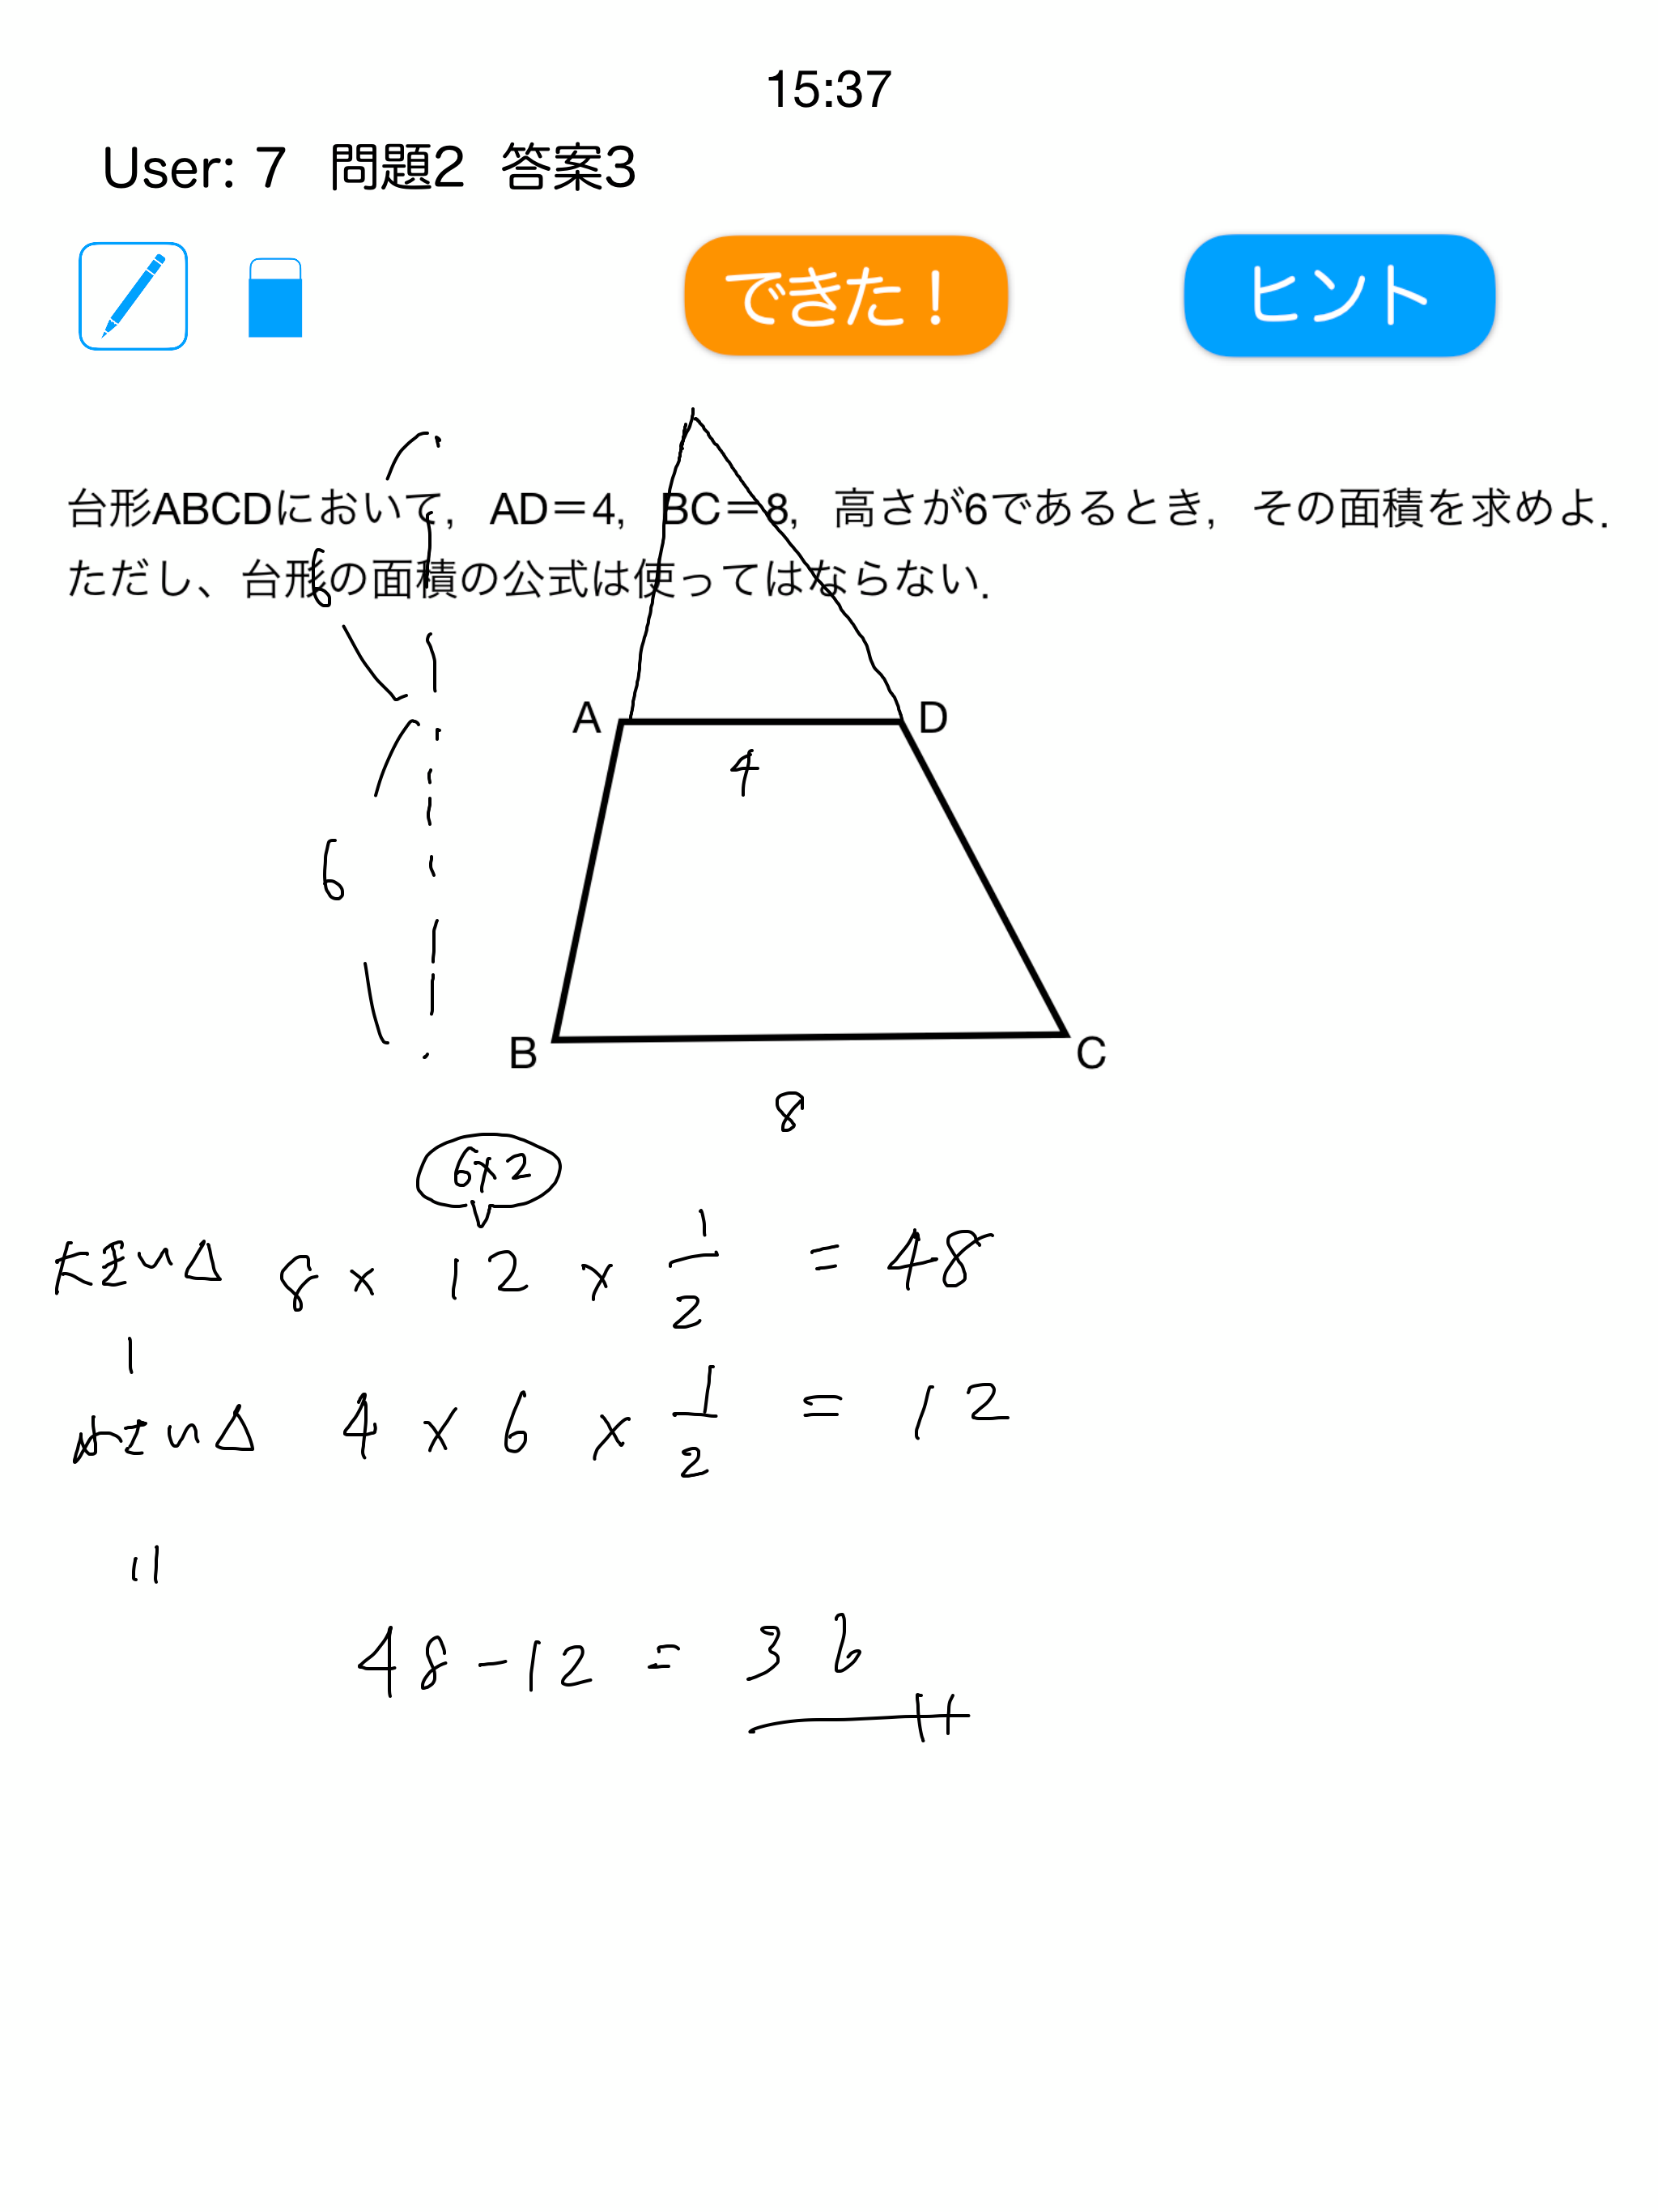 15:37
User: 7 問題2 答案3
できた！
ヒント
台形ABCDにおいて，AD＝4，BC＝8，高さが6であるとき，その面積を求めよ．
ただし、台形の面積の公式は使ってはならない．
6
A
D
4
6
B
C
8
6×2
大きい△ 8 × 12 × 1/2 = 48
小さい△ 4 × 6 × 1/2 = 12
48 - 12 = 36